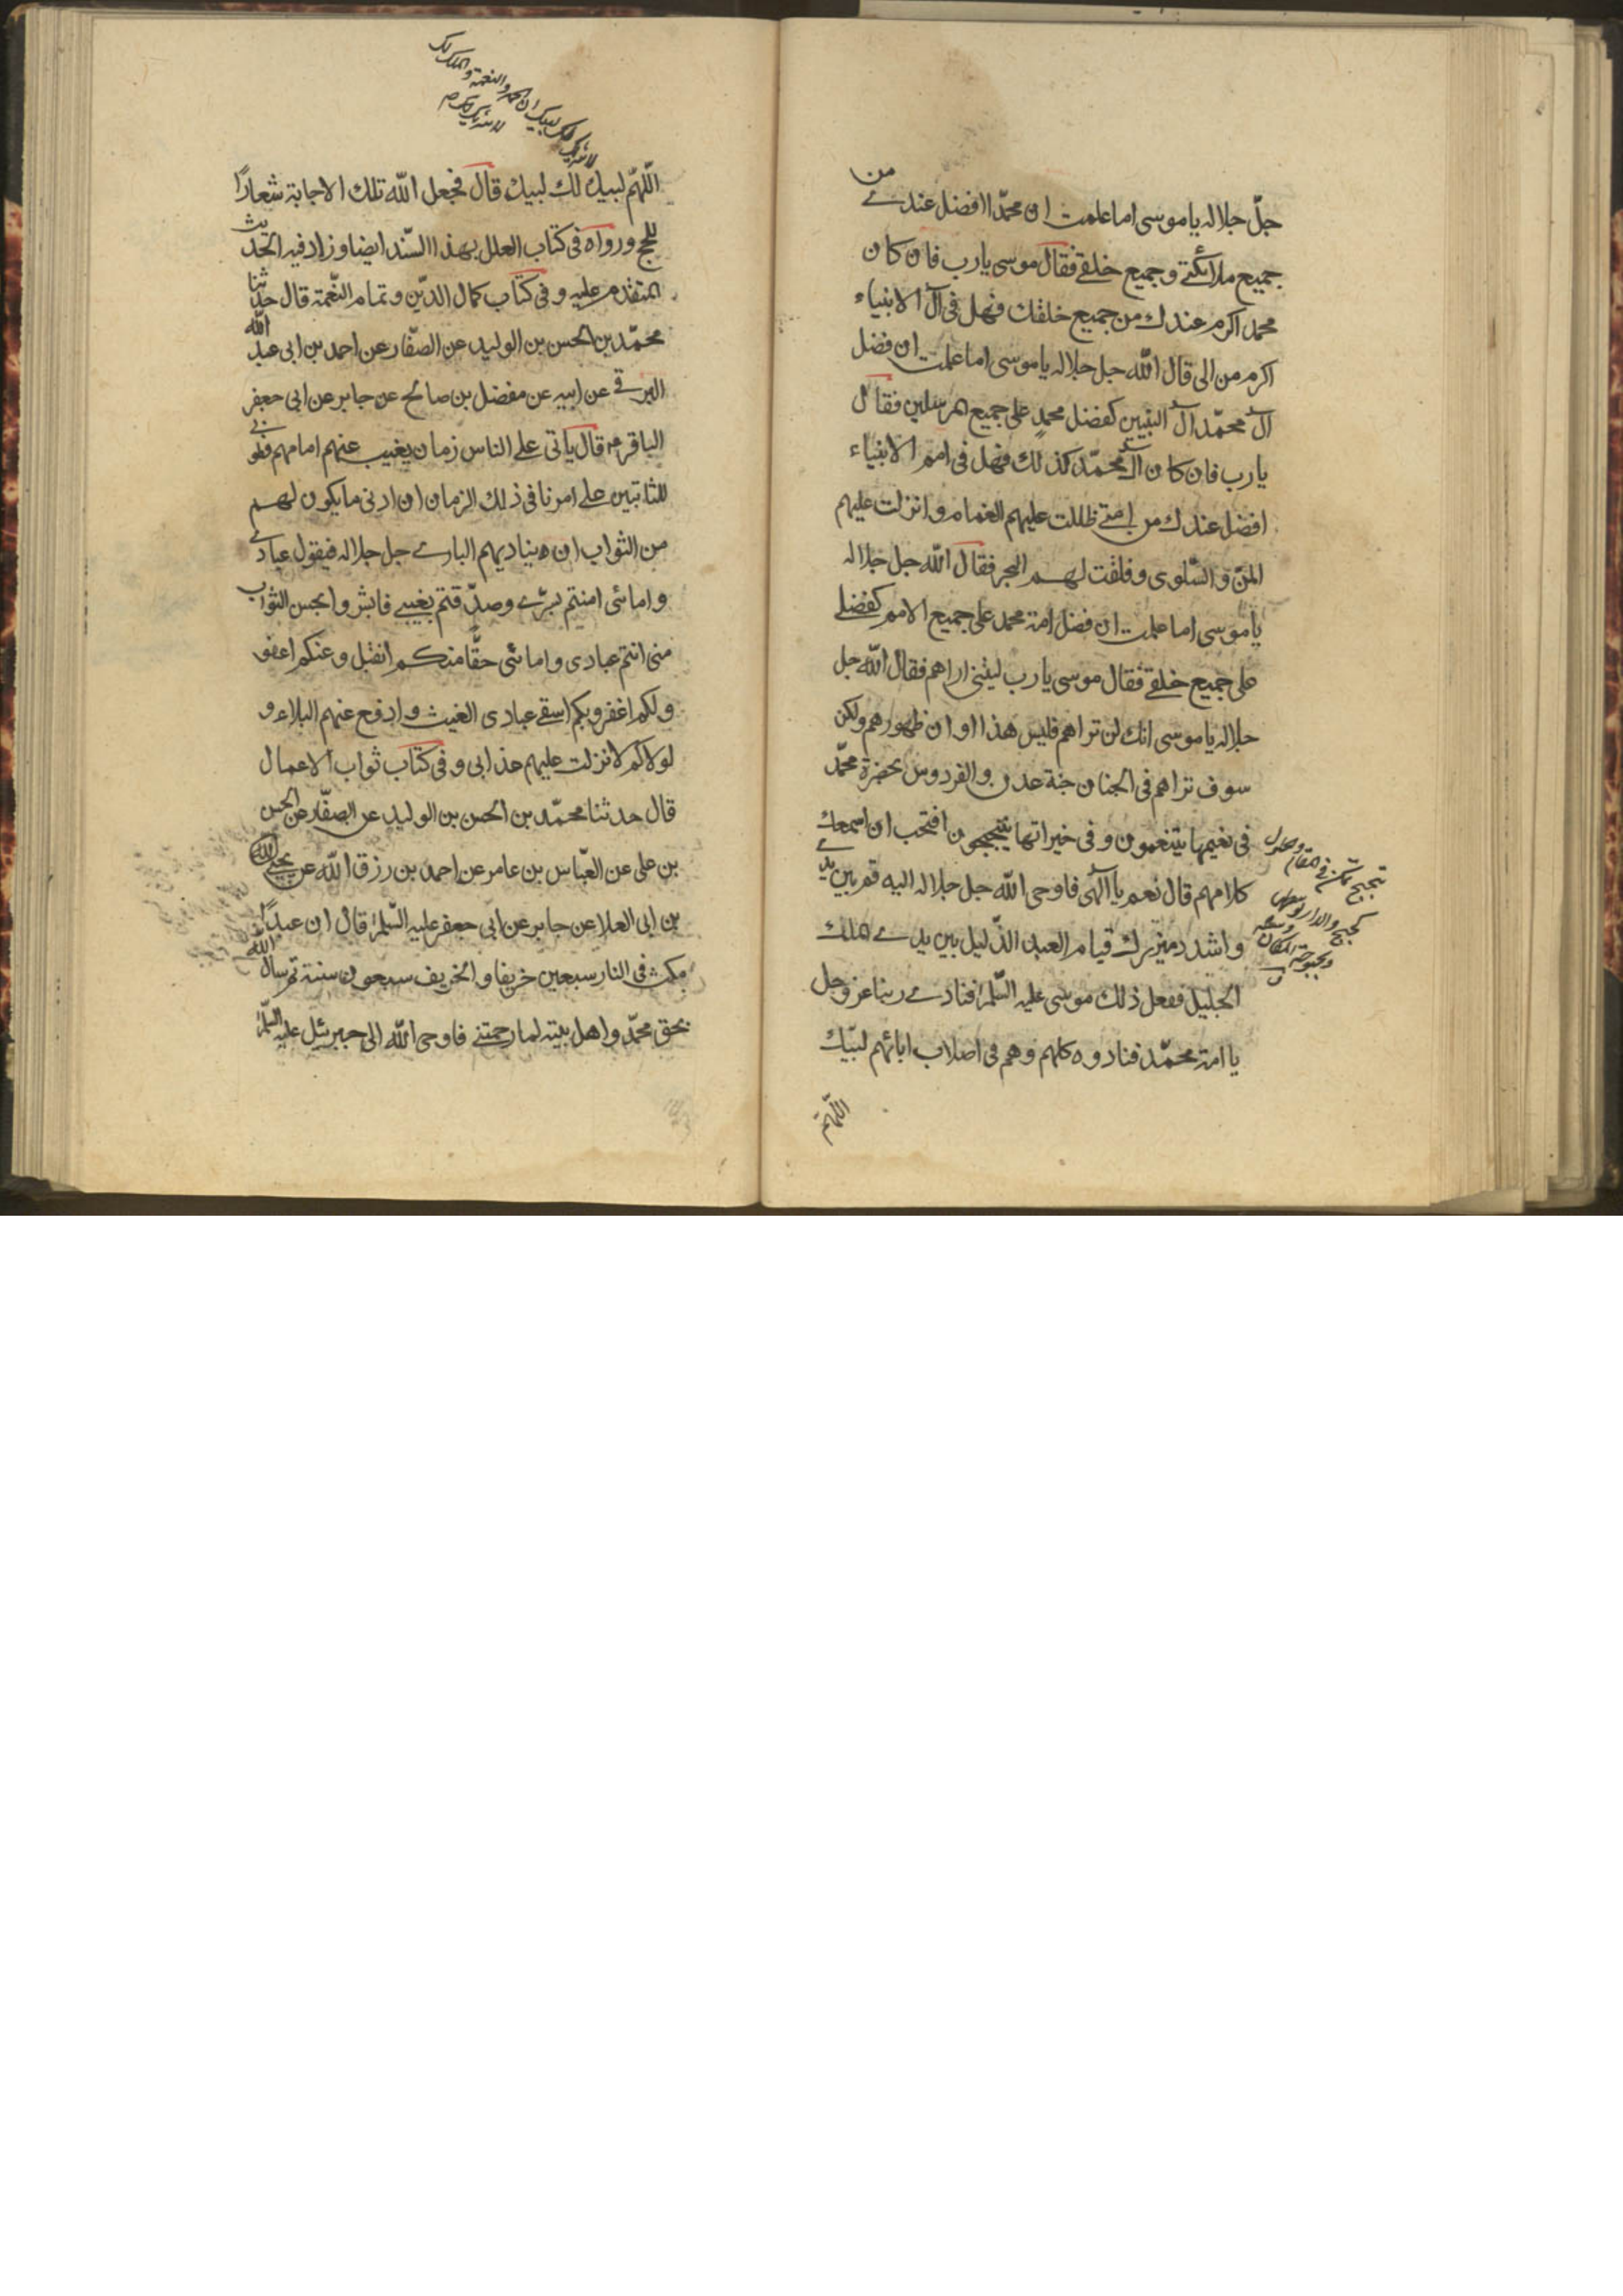 جلّ جلاله يا موسى اما علمت ان محمّدا افضل عندي من
جميع ملائكتي وجميع خلقي فقال موسى يا رب فان كان
محمد اكرم عندك من جميع خلقك فهل في آل الانبياء
اكرم من الى قال الله جل جلاله يا موسى اما علمت ان فضل
آل محمّد آل النبيين كفضل محمد على جميع المرسلين فقال
يا رب فان كان آل محمّد كذلك فهل في امم الانبياء
افضل عندك من امتي ظللت عليهم الغمام وانزلت عليهم
المنّ والسّلوى وفلقت لهم البحر فقال الله جل جلاله
يا موسى اما علمت ان فضل امة محمد على جميع الامم كفضلي
على جميع خلقي فقال موسى يا رب ليتني اراهم فقال الله جل
جلاله يا موسى انك لن تراهم فليس هذا اوان ظهورهم ولكن
سوف تراهم في الجنان جنة عدن والفردوس بحضرة محمّد
في نعيمها يتنعمون وفي خيراتها يتبجحون افتحب ان اسمعك
كلامهم قال نعم يا الهى فاوحى الله جل جلاله اليه قم بين يدي
واشدد ميزرك قيام العبد الذّليل بين يدي الملك
الجليل ففعل ذلك موسى عليه السّلم فنادى ربنا عز وجل
يا امة محمّد فنادوه كلهم وهم في اصلاب ابائهم لبّيك
اللّهمّ
تبحبح تمكن في المقام وحلول
وبحبوحة المكان
لا شريك لك لبيك ان الحمد والنعمة والملك لك
لا شريك لك
اللّهمّ لبيك لك لبيك قال فجعل الله تلك الاجابة شعارًا
للحج ورواه في كتاب العلل بهذا السّند ايضا وزاد فيه الحديث
المتقدم عليه وفي كتاب كمال الدّين وتمام النّعمة قال حدثنا
محمّد بن الحسن بن الوليد عن الصفّار عن احمد بن ابى عبد الله
البرقي عن ابيه عن مفضل بن صالح عن جابر عن ابى جعفر
الباقر قال يأتى على الناس زمان يغيب عنهم امامهم فطوبى
للثابتين على امرنا في ذلك الزمان ان ادنى ما يكون لهم
من الثواب ان يناديهم الباري جل جلاله فيقول عبادي
وامائى امنتم بسرّي وصدّقتم بغيبي فابشروا بحسن الثواب
منى انتم عبادى وامائى حقًّا منكم اتقبل وعنكم اعفو
ولكم اغفر وبكم اسقى عبادى الغيث وادفع عنهم البلاء و
لولاكم لانزلت عليهم عذابى وفي كتاب ثواب الاعمال
قال حدثنا محمّد بن الحسن بن الوليد عن الصفّار عن الحسن
بن على عن العبّاس بن عامر عن احمد بن رزق الله عن يحيى
بن ابى العلا عن جابر عن ابى جعفر عليه السّلم قال ان عبدًا
مكث في النار سبعين خريفا والخريف سبعون سنة ثم سال الله
بحق محمّد واهل بيته لما رحمتني فاوحى الله الى جبرئيل عليه السّلم